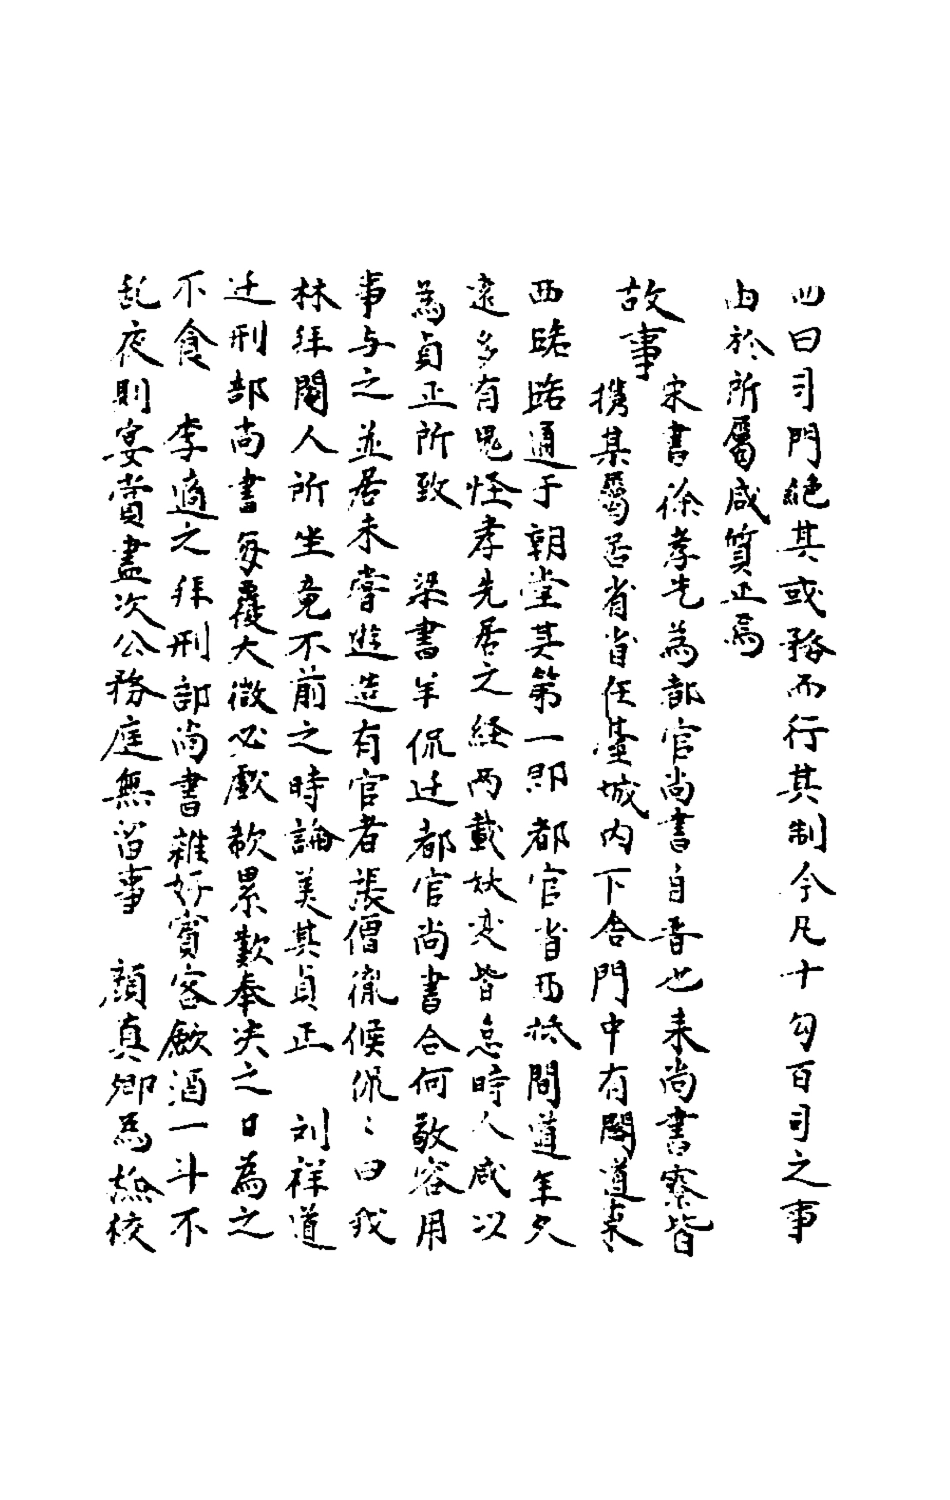 四曰司門絶其或務而行其制令凡十勾百司之事
由於所屬咸質正焉
故事
宋書徐孝先為都官尚書自晋也来尚書寮皆
携某屬居省省任臺城内下舎門中有閣道東
西路路通于朝堂其第一即都官省西柢閣道年久
遠多有鬼怪孝先居之経两載妖变皆怠時人咸以
為貞正所致　梁書羊侃迁都官尚書合何敬容用
事与之並居未嘗遊造有官者張僧胤候侃〻曰我
林拝閹人所坐竟不前之時論美其貞正　刘祥道
迁刑部尚書每覆大微必歔欷累歎奉决之日為之
不食　李適之拝刑部尚書雑好賓客飲酒一斗不
乱夜則宴賞晝次公務庭無留事　顔真卿為撿校